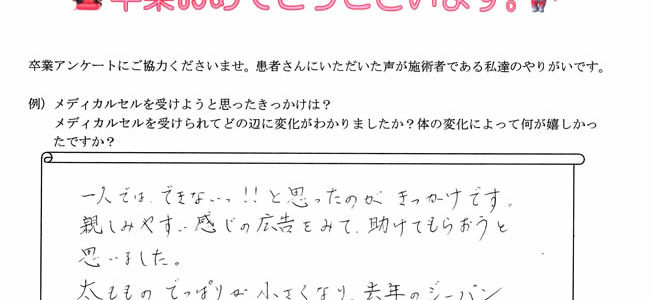 卒業おめでとうございます。
卒業アンケートにご協力くださいませ。患者さんにいただいた声が施術者である私達のやりがいです。
例）メディカルセルを受けようと思ったきっかけは？
メディカルセルを受けられてどの辺に変化がわかりましたか？体の変化によって何が嬉しかっ
たですか？
一人では、できないっ!!と思ったのが きっかけです。
親しみやすい感じの広告をみて、助けてもらおうと
思いました。
太ももの でっぱりが 小さくなり、去年のジーパン